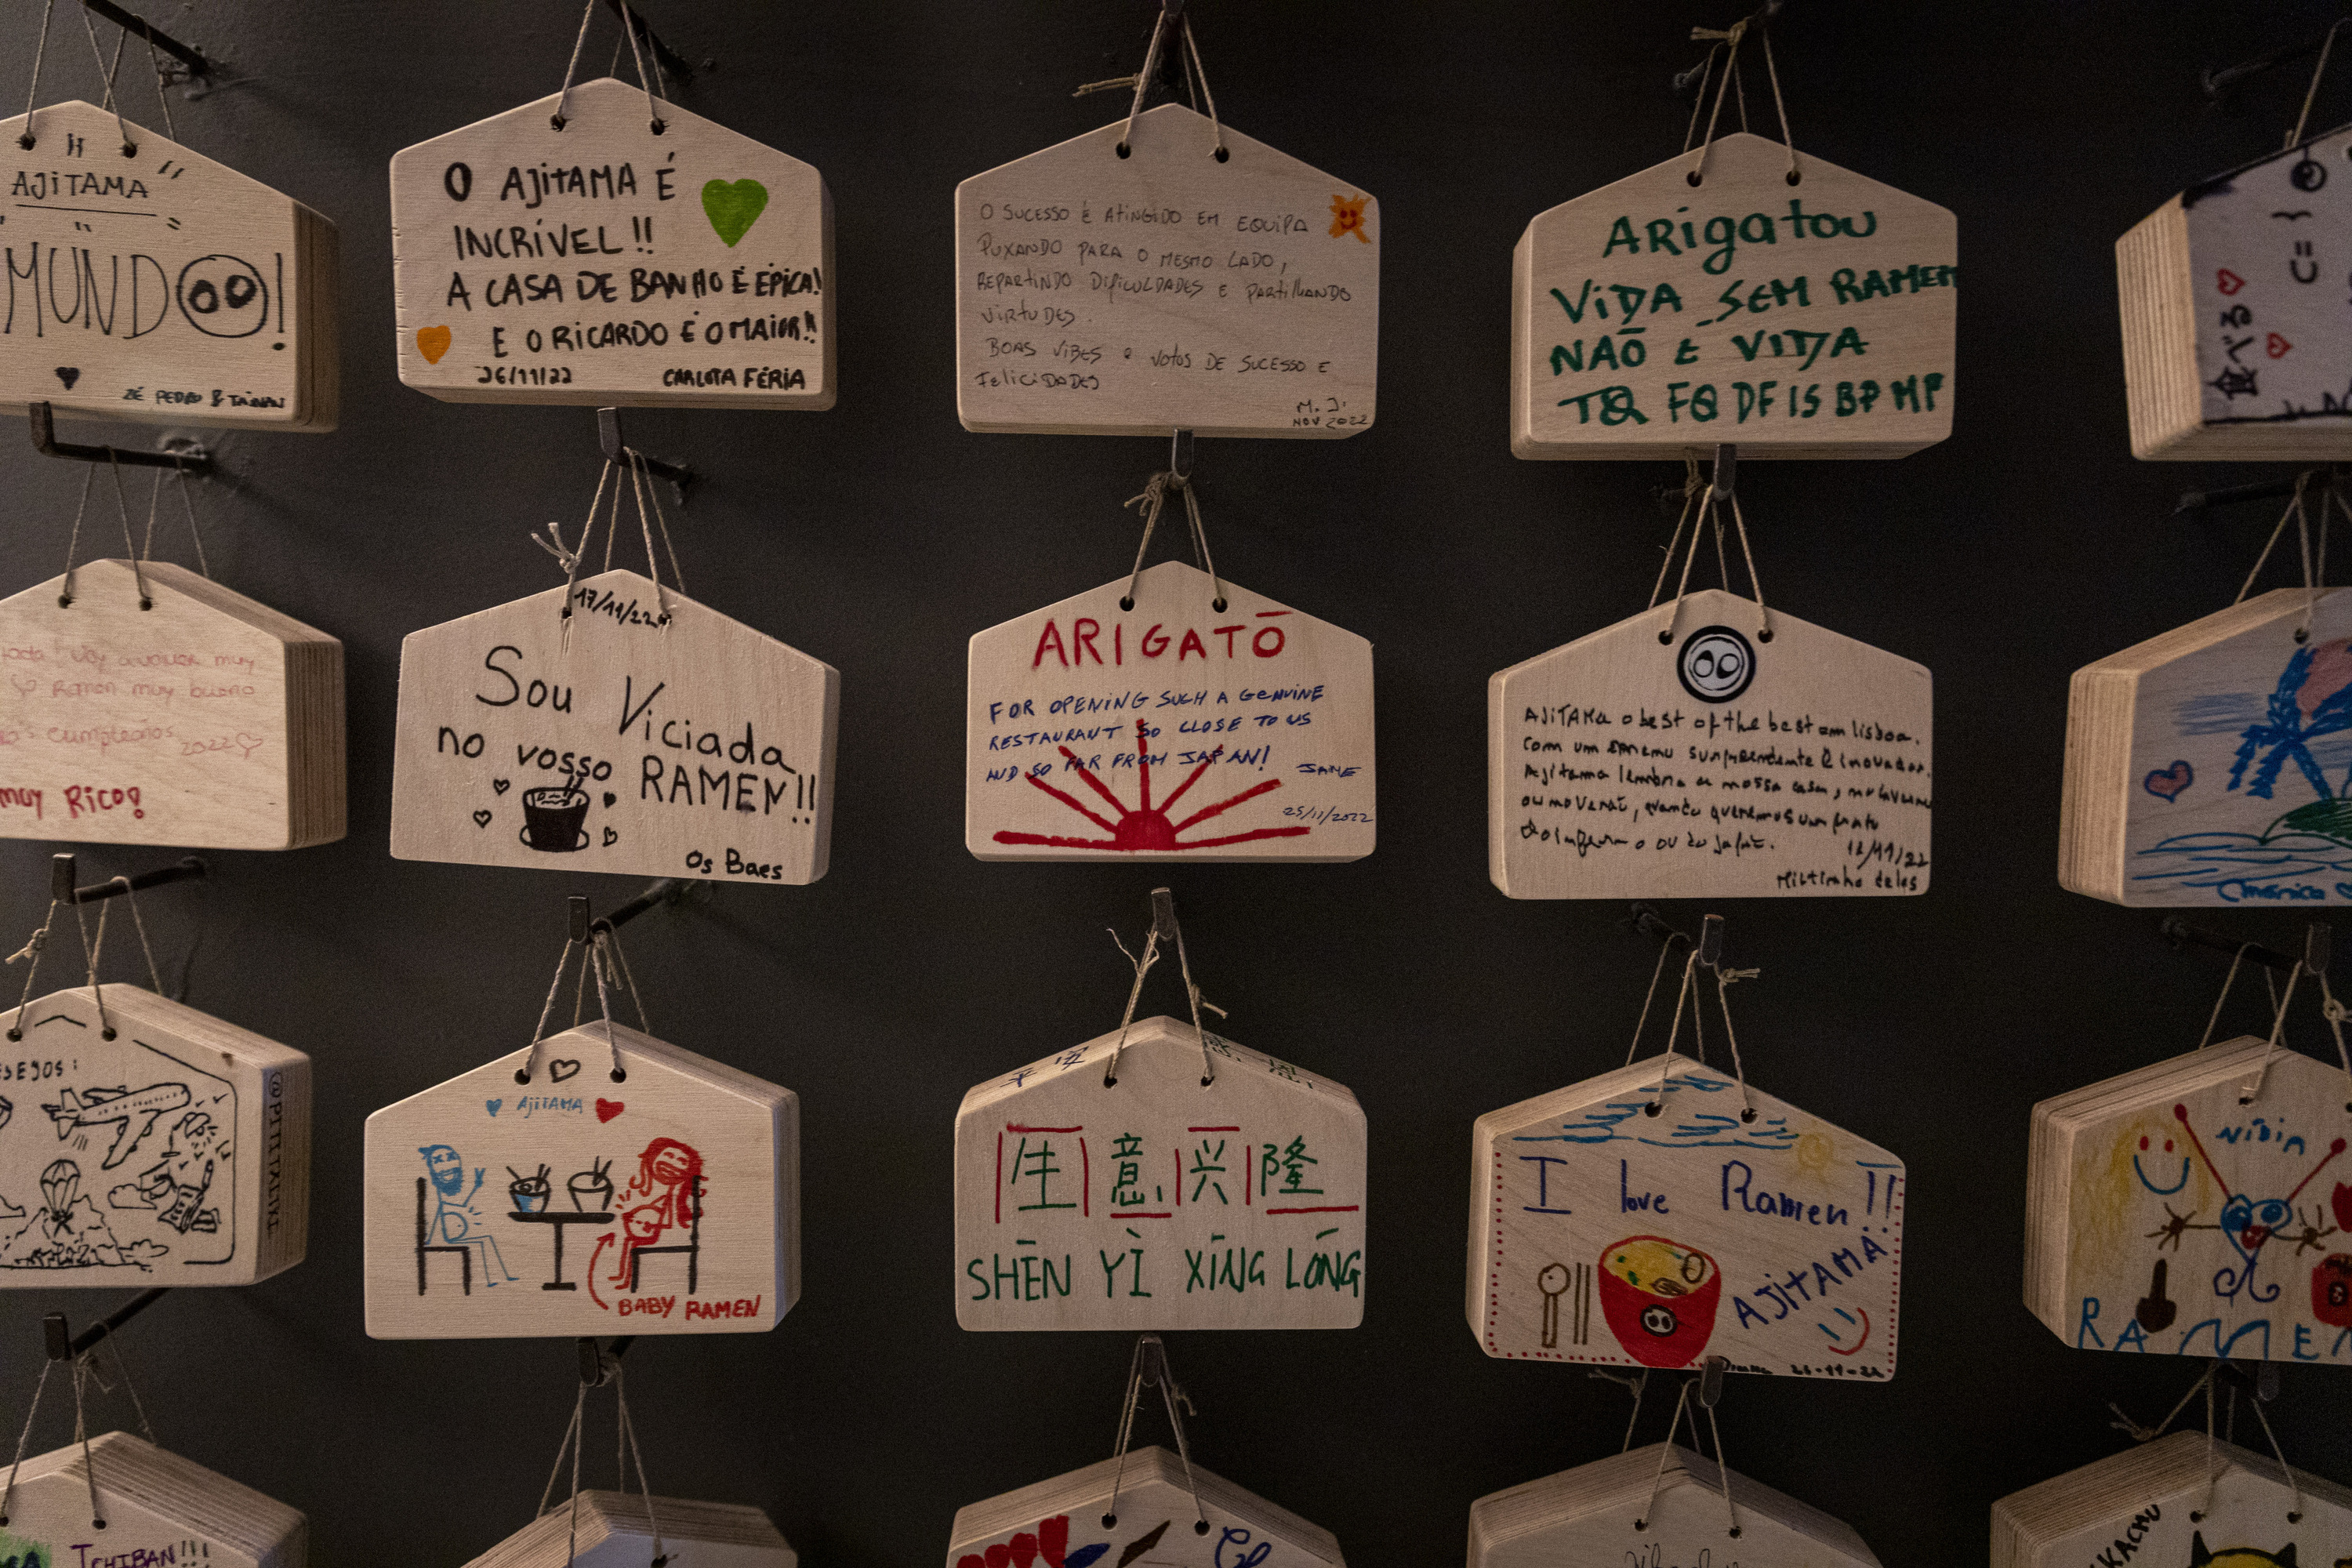 AJITAMA
MUNDO!
ZÉ PEDRO & TAINAN
O AJITAMA É
INCRÍVEL!!
A CASA DE BANHO É ÉPICA!
E O RICARDO É O MAIOR!!
26/11/22
CARLOTA FÉRIA
O SUCESSO É ATINGIDO EM EQUIPA
PUXANDO PARA O MESMO LADO,
REPARTINDO DIFICULDADES E PARTILHANDO
VIRTUDES.
BOAS VIBES e votos DE SUCESSO E
FELICIDADES
M. J.
NOV 2022
ARigatou
ViDA SEM RAMEN
NÃO É VIDA
TQ FQ DF IS BP MP
食べる
muy
Ramen muy bueno
cumpleaños 2022
muy Rico!
17/11/22
Sou Viciada
no vosso RAMEN!!
Os Baes
ARIGATŌ
FOR OPENING SUCH A GENUINE
RESTAURANT SO CLOSE TO US
AND SO FAR FROM JAPAN!
JANE
25/11/2022
AJITAMA o best of the best em lisboa.
Com um surpreendente e inovador.
Ajitama lembra a nossa casa, no
ou no verão, quando queremos um prato
do ou do
12/11/22
Miltinho
AJITAMA
BABY RAMEN
生意兴隆
SHĒN YÌ XĪNG LÓNG
I love Ramen!!
AJITAMA!
RAMEN
ICHIBAN!!!